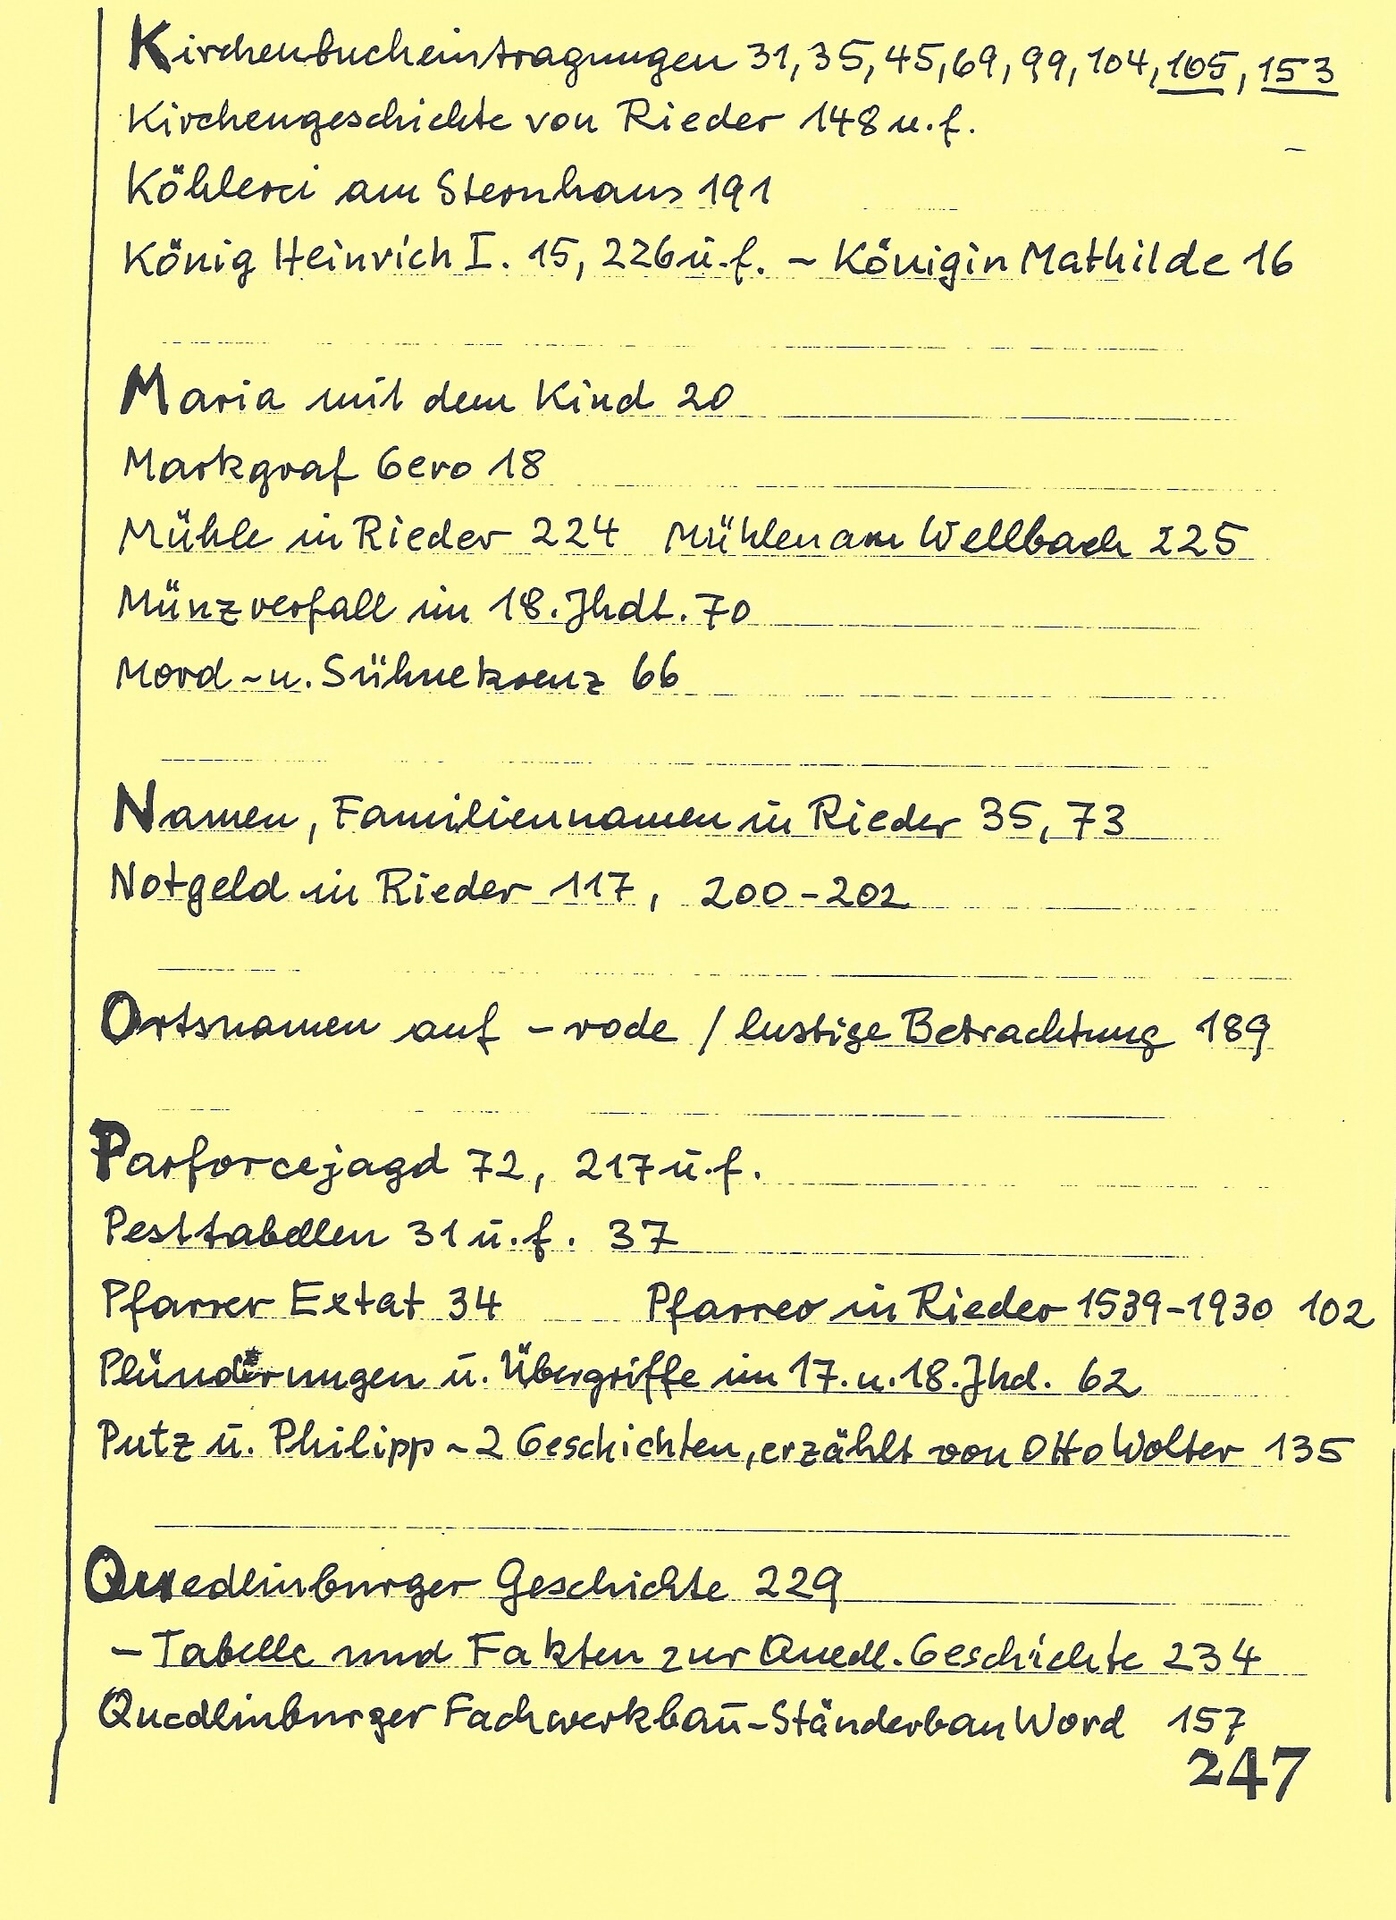 Kirchenbucheintragungen 31, 35, 45, 69, 99, 104, 105, 153
Kirchengeschichte von Rieder 148 u.f.
Köhlerei am Sternhaus 191
König Heinrich I. 15, 226 u.f. - Königin Mathilde 16
Maria mit dem Kind 20
Markgraf Gero 18
Mühle in Rieder 224 Mühlen am Wellbach 225
Münzverfall im 18. Jhdt. 70
Mord- u. Sühnekreuz 66
Namen, Familiennamen in Rieder 35, 73
Notgeld in Rieder 117, 200-202
Ortsnamen auf -rode / lustige Betrachtung 189
Parforcejagd 72, 217 u.f.
Pesttabellen 31 u.f. 37
Pfarrer Extat 34 Pfarrer in Rieder 1539-1930 102
Plünderungen u. Übergriffe im 17. u. 18. Jhd. 62
Putz u. Philipp - 2 Geschichten, erzählt von Otto Wolter 135
Quedlinburger Geschichte 229
- Tabelle und Fakten zur Quedl. Geschichte 234
Quedlinburger Fachwerkbau-Ständerbau Word 157
247